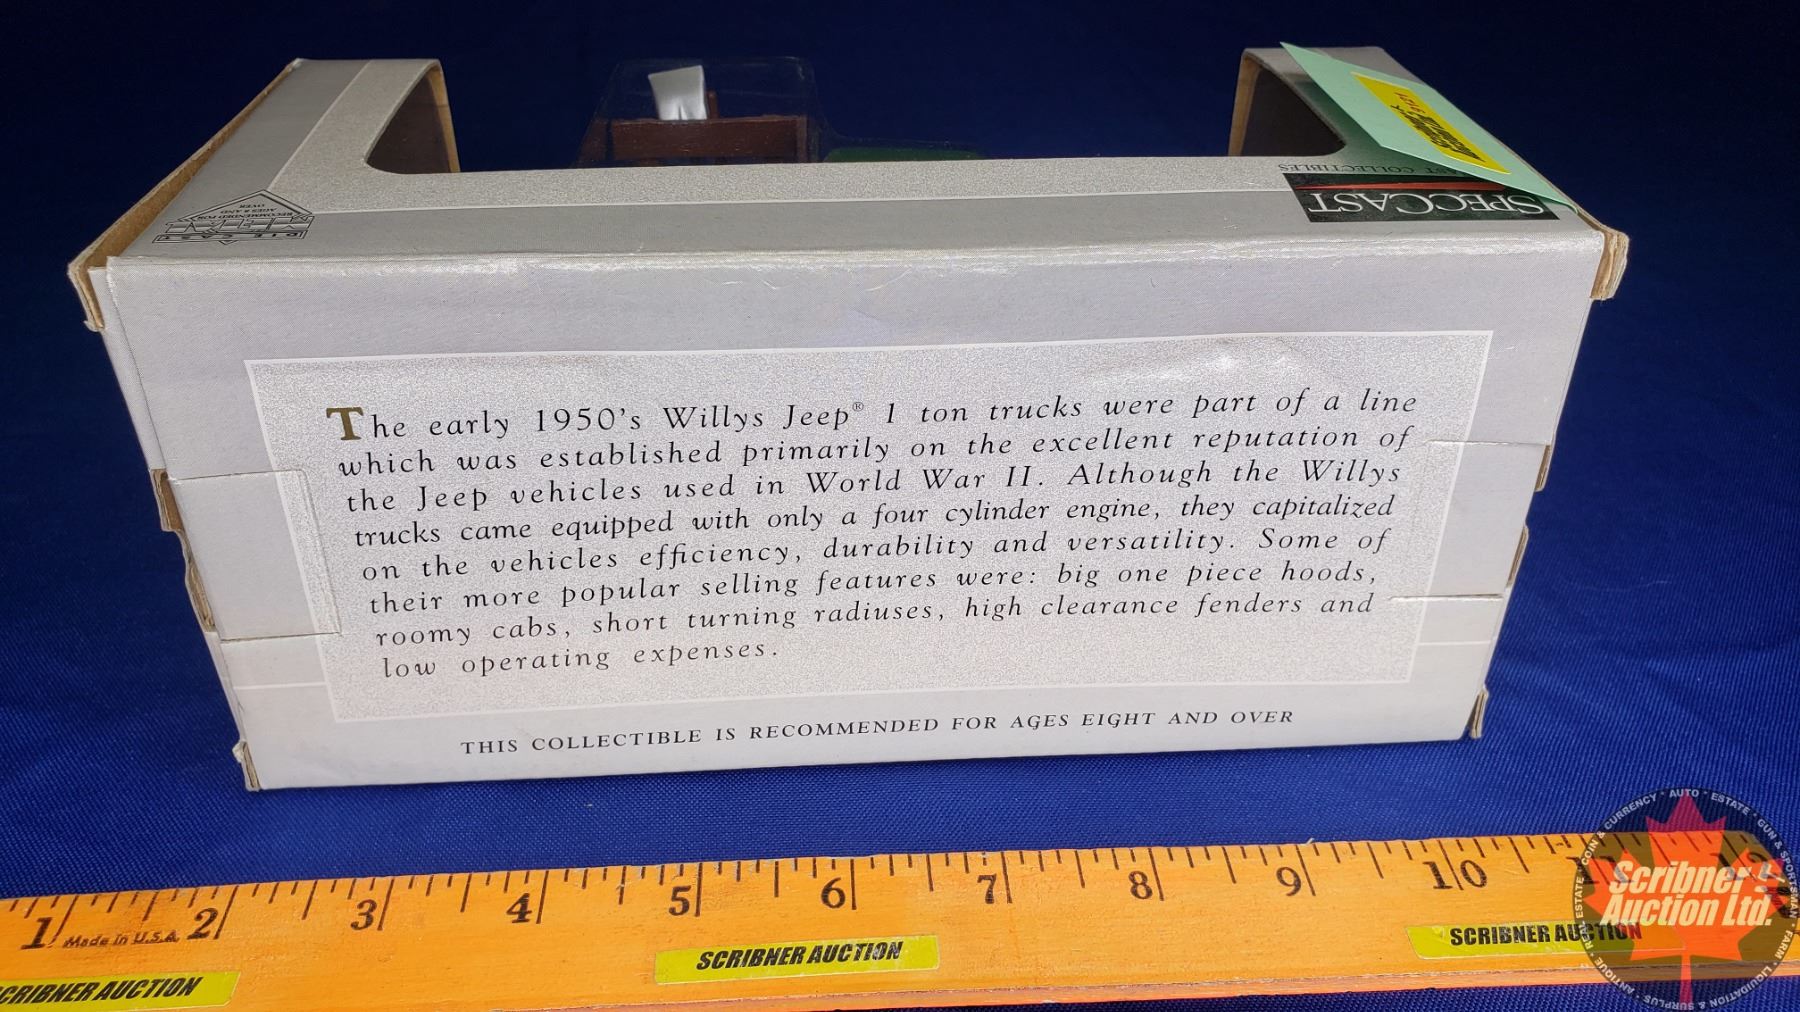 DIE CAST
METAL
RECOMMENDED FOR
AGES 8 AND
OVER
SPECCAST
CAST COLLECTIBLES
The early 1950's Willys Jeep® 1 ton trucks were part of a line
which was established primarily on the excellent reputation of
the Jeep vehicles used in World War II. Although the Willys
trucks came equipped with only a four cylinder engine, they capitalized
on the vehicles efficiency, durability and versatility. Some of
their more popular selling features were: big one piece hoods,
roomy cabs, short turning radiuses, high clearance fenders and
low operating expenses.
THIS COLLECTIBLE IS RECOMMENDED FOR AGES EIGHT AND OVER
1 2 3 4 5 6 7 8 9 10 11 12
Made in U.S.A.
SCRIBNER AUCTION
SCRIBNER AUCTION
SCRIBNER AUCTION
Scribner
Auction Ltd.
ANTIQUE • REAL ESTATE • COIN & CURRENCY • AUTO • ESTATE • GUN & SPORTSMAN • FARM • LIQUIDATION & SURPLUS